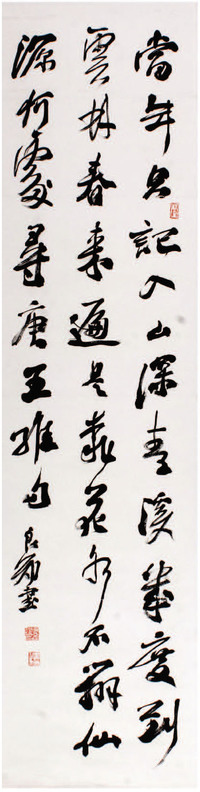 當年只記入山深青溪幾度到
雲林春來遍是桃花水不辨仙
源何處尋唐王維句
書